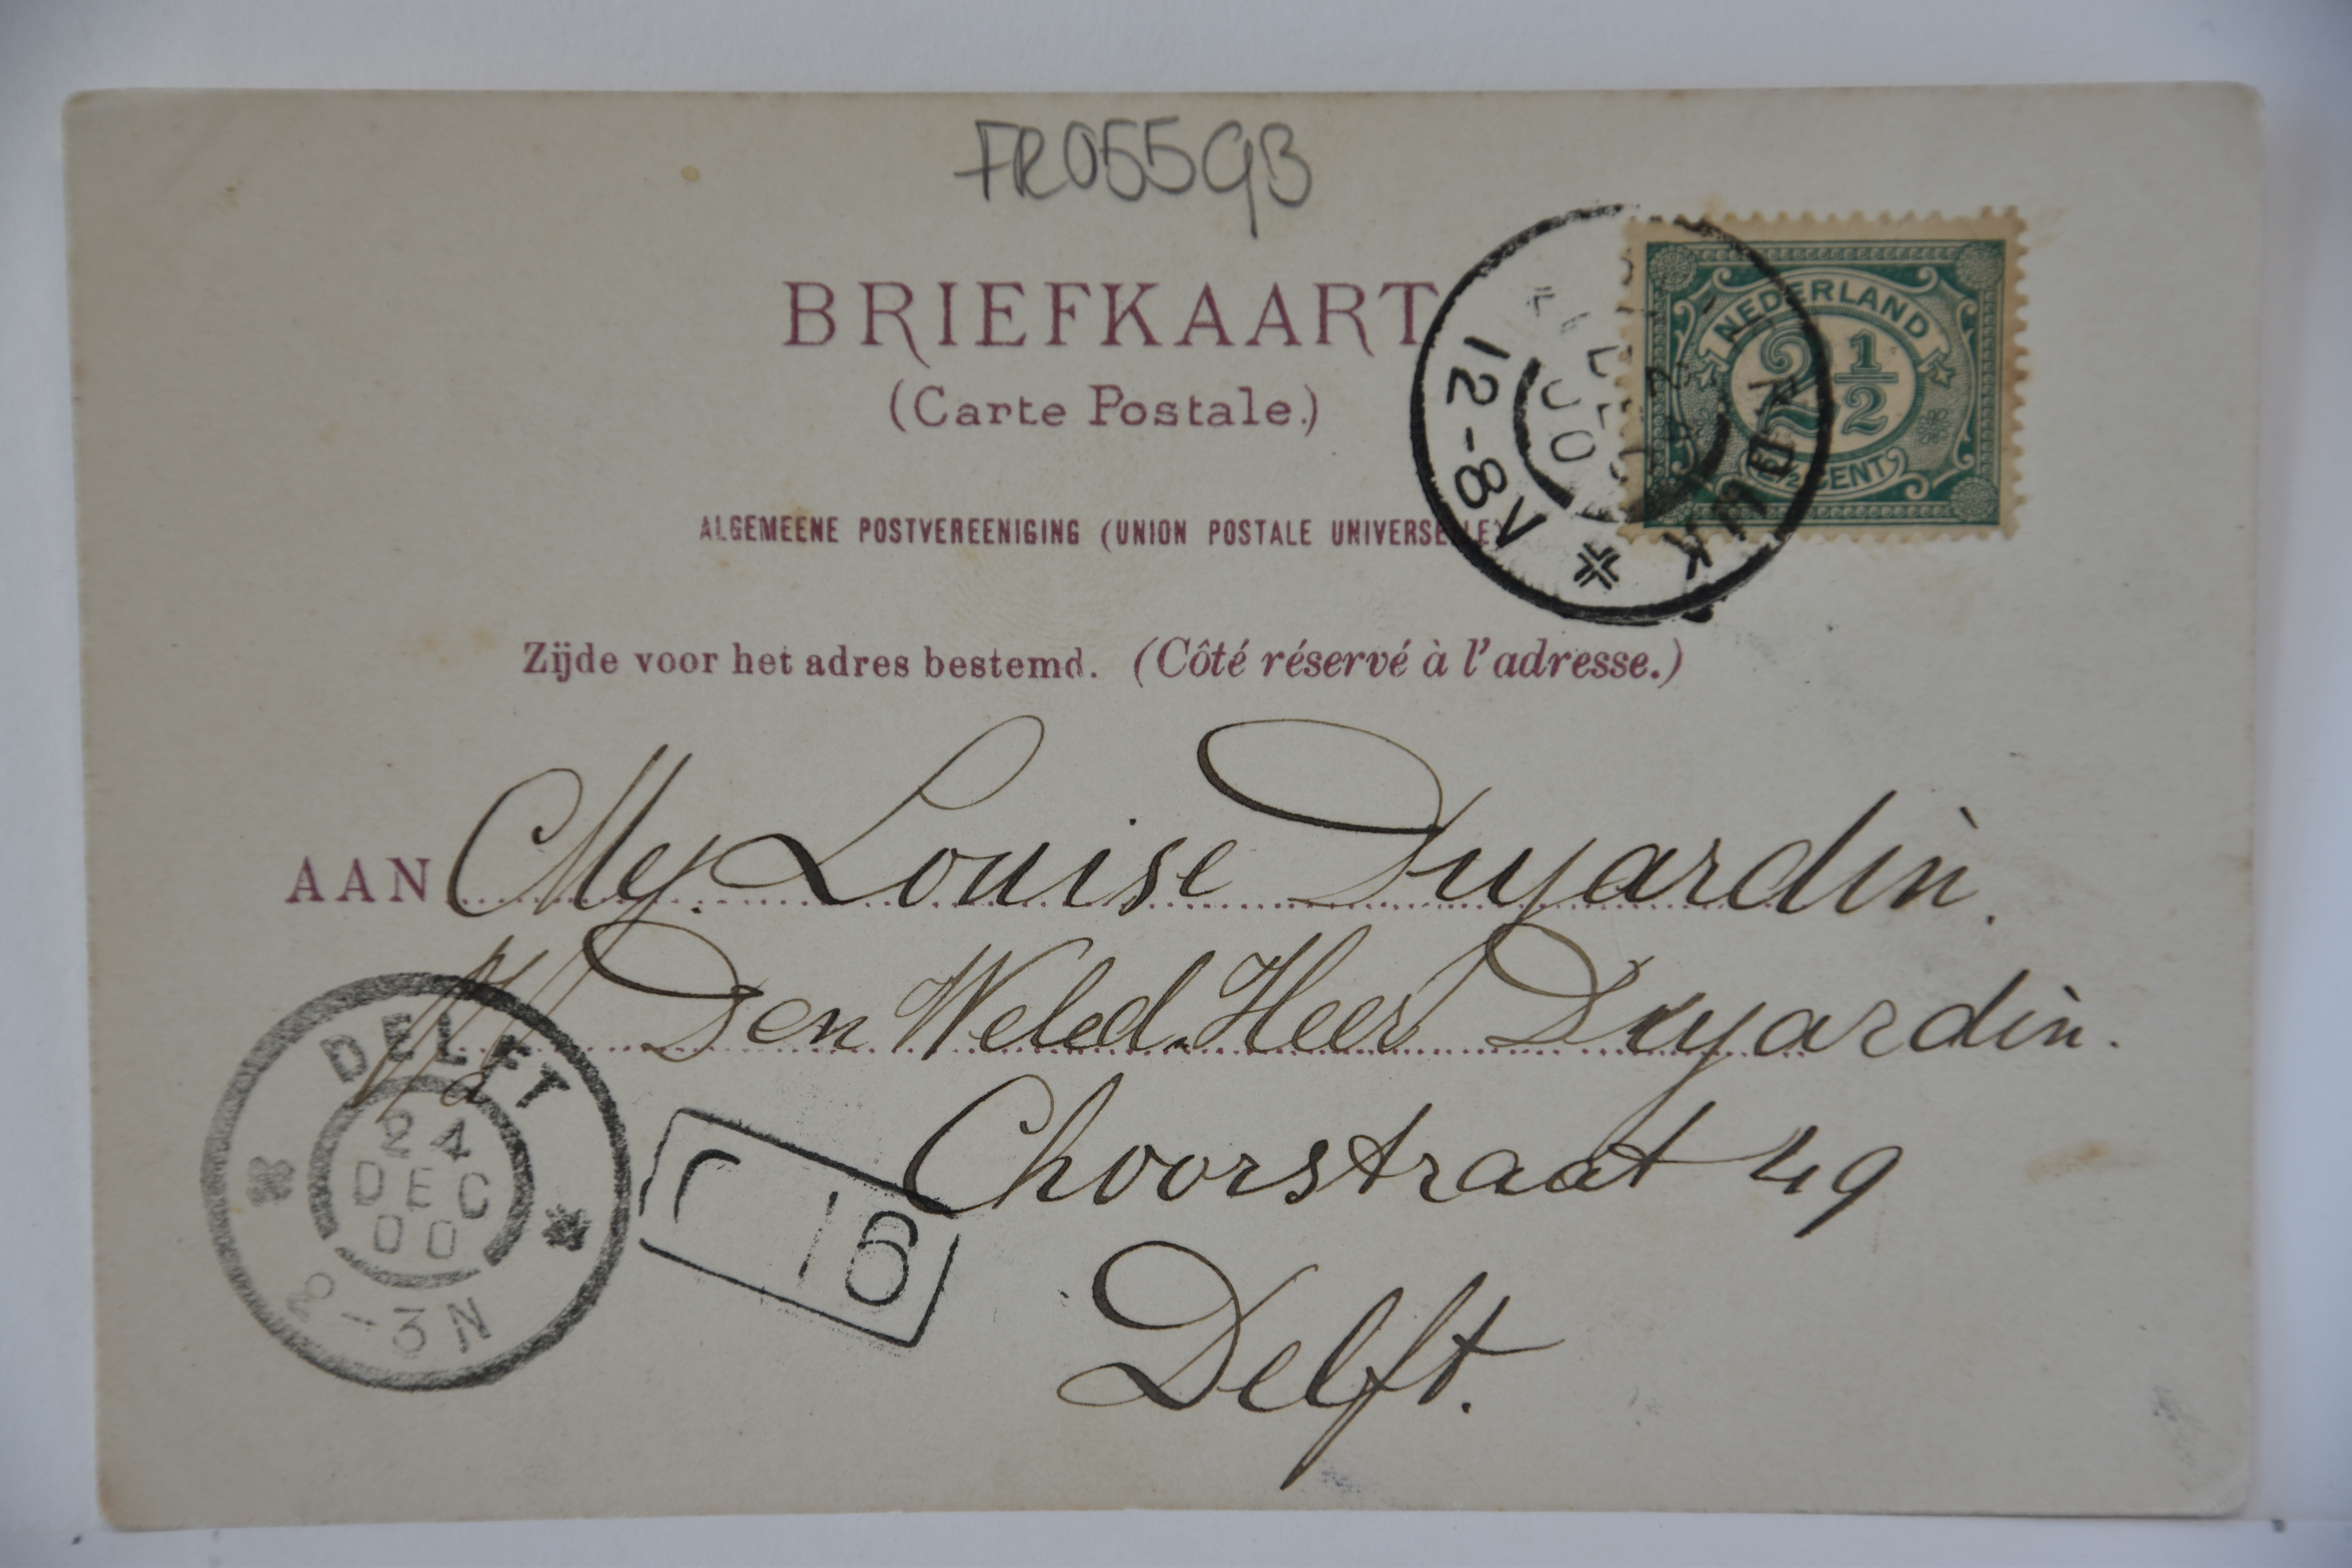 FR055GB
BRIEFKAART
(Carte Postale.)
ALGEMEENE POSTVEREENIGING (UNION POSTALE UNIVERSELLE)
Zijde voor het adres bestemd. (Côté réservé à l'adresse.)
NEDERLAND
2 1/2
2½ CENT
12-8V
00
AAN Mej. Louise Dujardin.
Den Weled. Heer Dujardin.
Choorstraat 49
Delft.
DELFT
24
DEC
00
2-3N
16